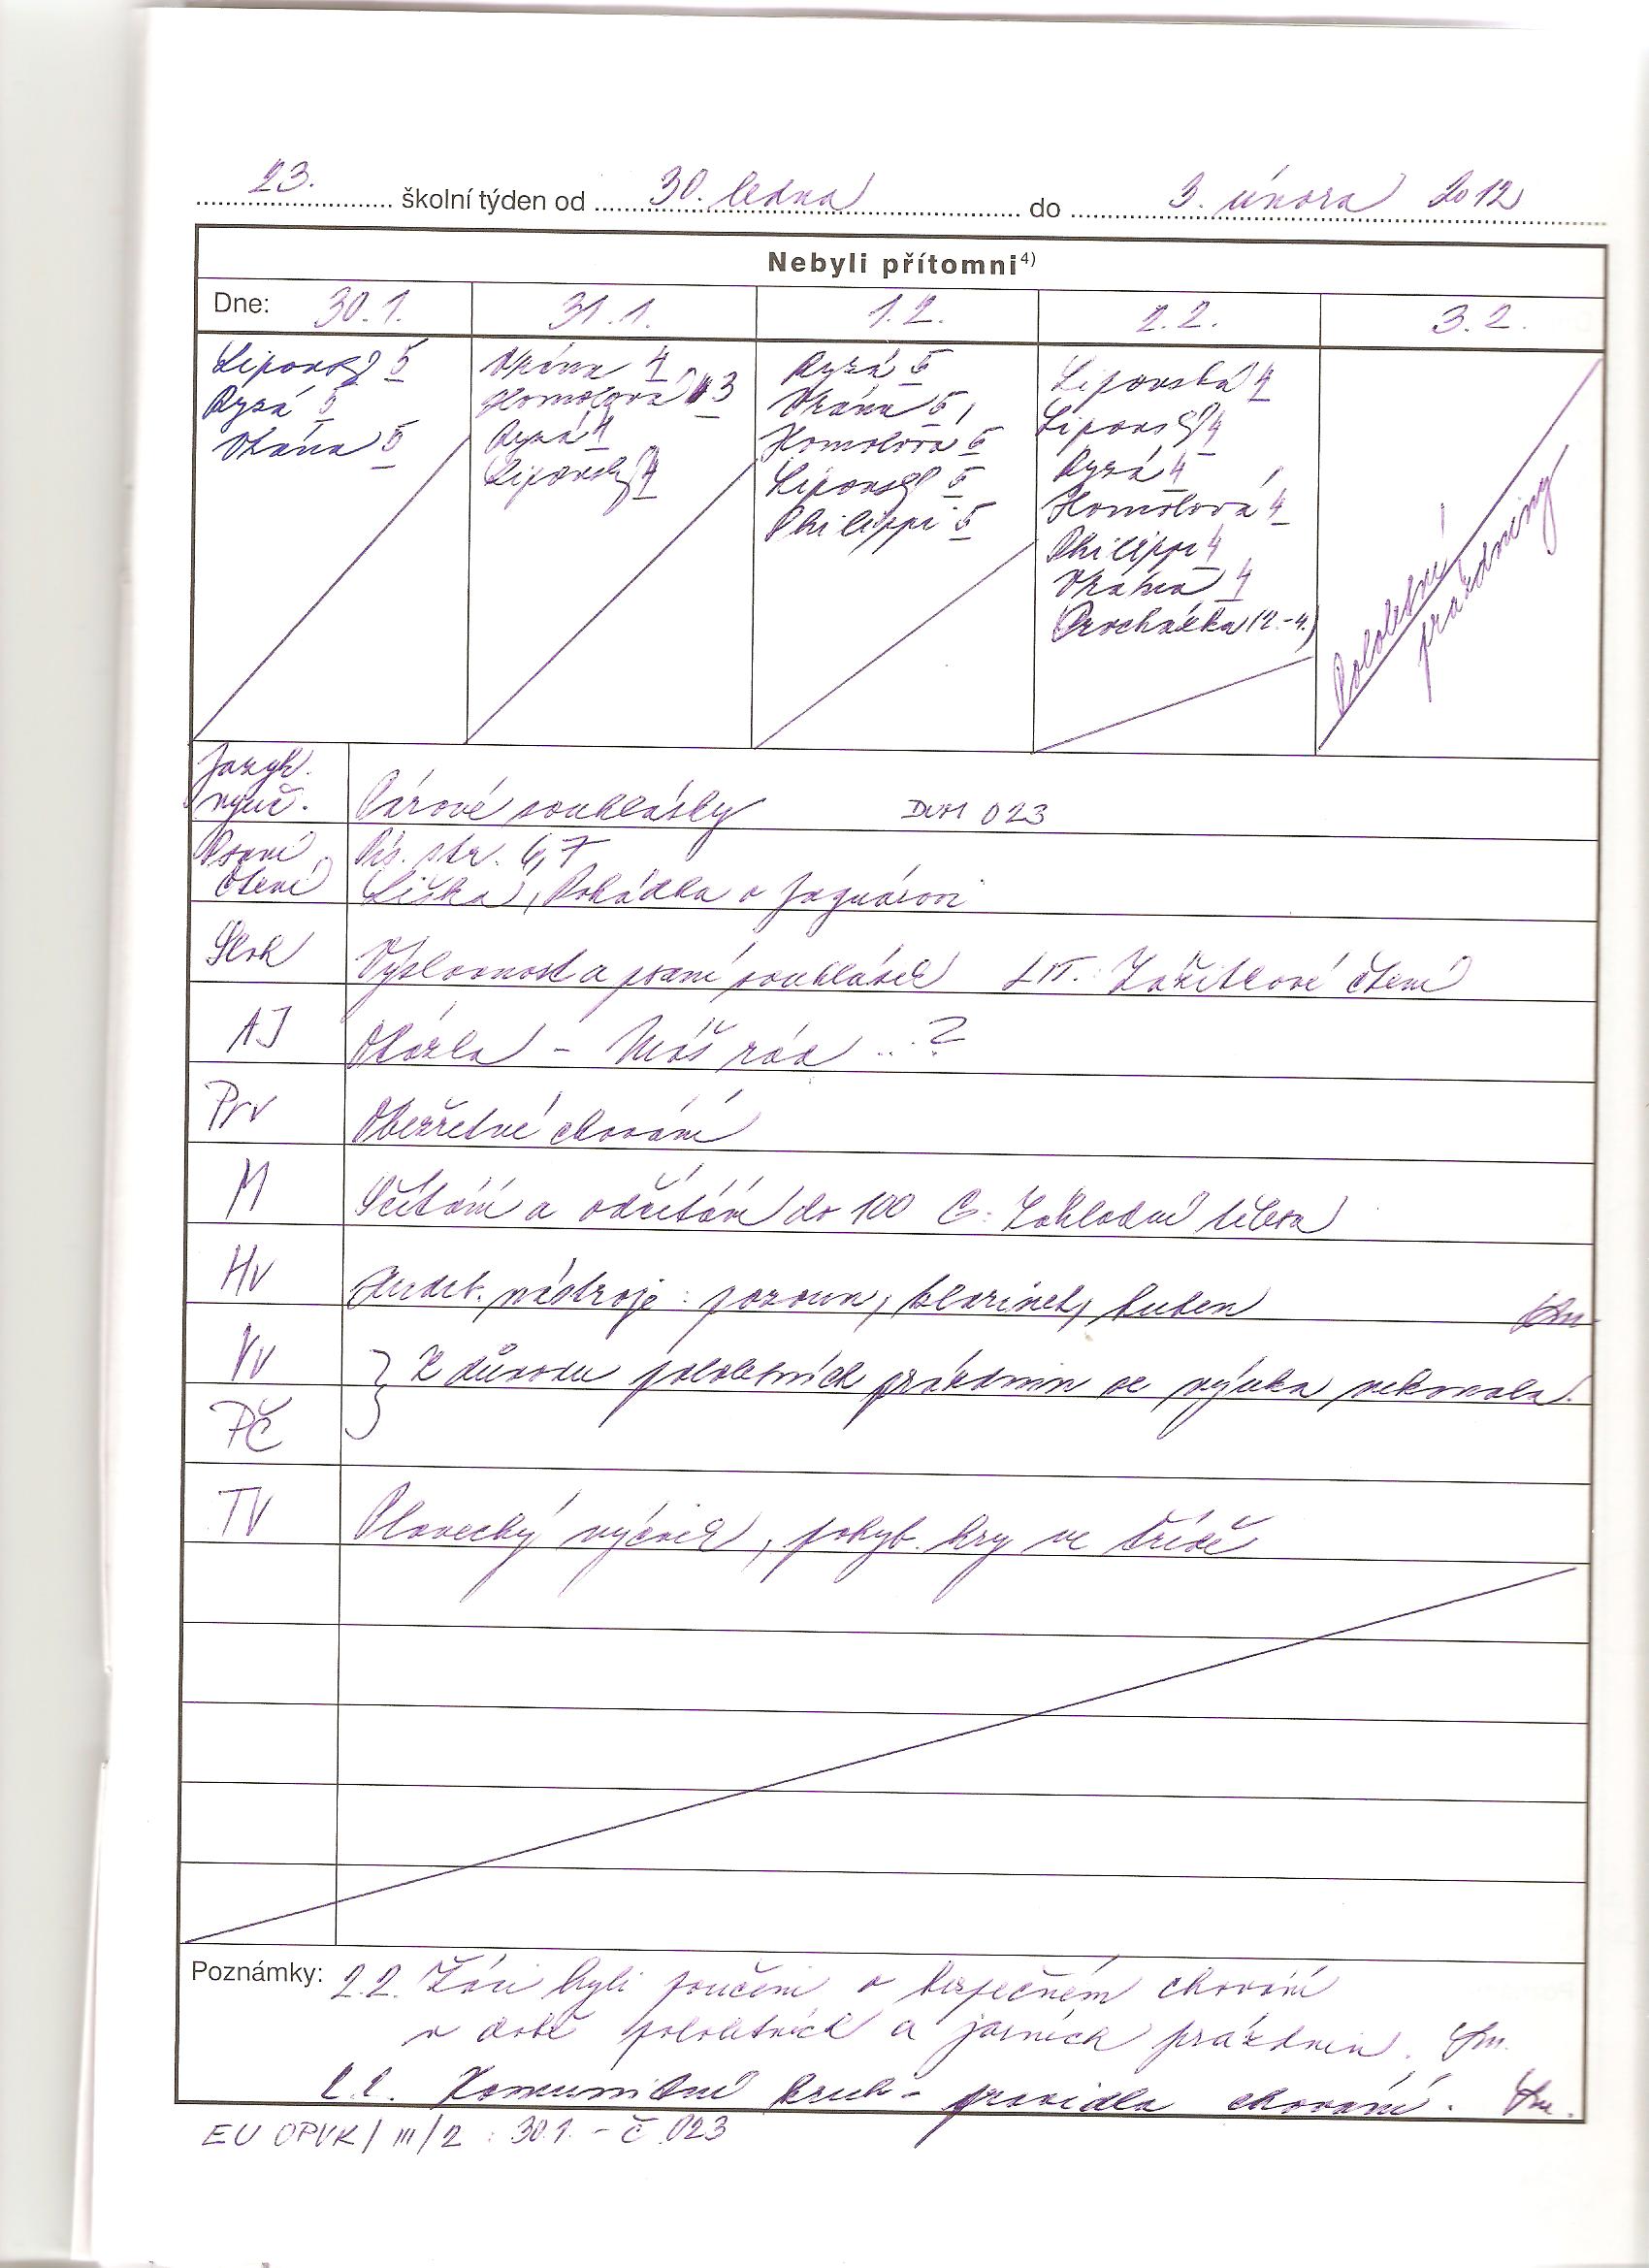 23. školní týden od 30. ledna do 3. února 2012
Nebyli přítomni4)
Dne: 30.1. 31.1. 1.2. 2.2. 3.2.
Lipovský 5
Ryzá 5
Vrána 5
Vrána 4
Homolová 3
Ryzá 4
Lipovský 4
Ryzá 5
Vrána 5
Homolová 5
Lipovský 5
Philippi 5
Lipovská 4
Lipovský 4
Ryzá 4
Homolová 4
Philippi 4
Vrána 4
Procházka (2.-4.)
Pololetní
prázdniny
Jazyk.
vyuč. Párové souhlásky DUM 023
Psaní Pís. str. 6,7
čtení Liška, Pohádka o Jaguárovi
Sloh Výslovnost a psaní souhlásek LIT.: Zážitkové čtení
AJ Otázka - Máš rád ...?
Prv Obezřetné chování
M Sčítání a odčítání do 100 G: Základní tělesa
Hv Hudeb. nástroje: pozoun, klarinet, buben
Vv } Z důvodu pololetních prázdnin se výuka nekonala.
PČ
TV Plavecký výcvik, pohyb. hry ve třídě
Poznámky: 2.2. Žáci byli poučeni o bezpečném chování
v době pololetních a jarních prázdnin.
2.2. Komunitní kruh - pravidla chování.
EU OPVK / III / 2 : 30.1. - č. 023